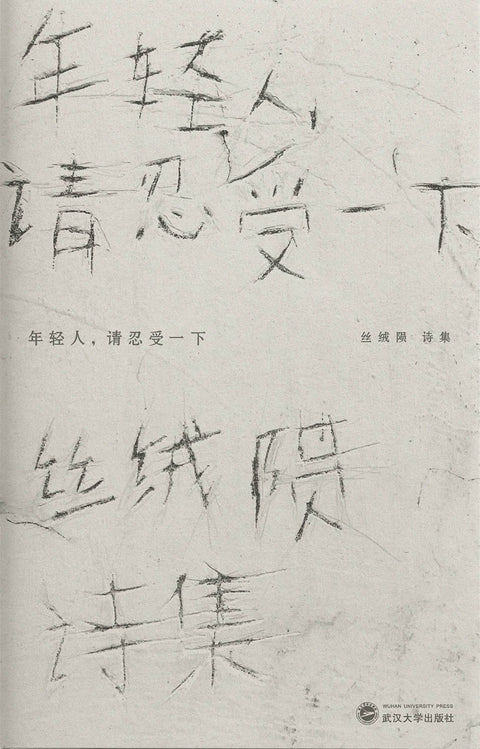 年轻人,
请忍受一下
年轻人，请忍受一下
丝绒陨 诗集
丝绒陨
诗集
WUHAN UNIVERSITY PRESS
武汉大学出版社